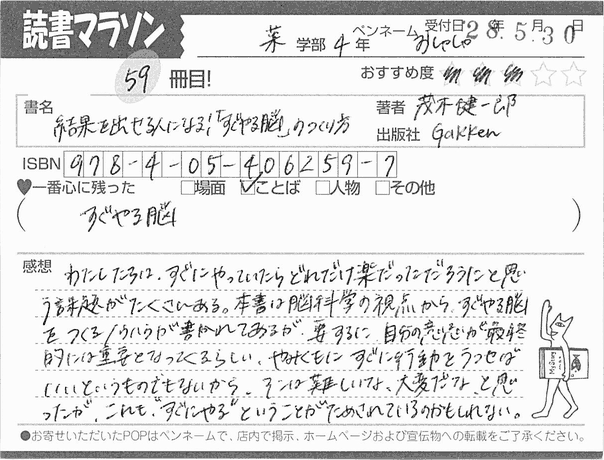 読書マラソン
薬 学部 4 年 ペンネーム おしゃしゃ 受付日 28年5月30日
59 冊目! おすすめ度
書名 結果を出せる人になる!「すぐやる脳」のつくり方
著者 茂木健一郎
出版社 Gakken
ISBN 978-4-05-406259-7
♥一番心に残った □場面 ☑ことば □人物 □その他
( すぐやる脳 )
感想
わたしたちは、すぐにやっていたらどれだけ楽だっただろうにと思
う課題がたくさんある。本書は脳科学の視点から、すぐやる脳
をつくるノウハウが書かれてあるが、要するに、自分の意志が最終
的には重要となってくるらしい。やみくもに すぐに行動をうつせば
いいというものでもないから、そこは難しいな、大変だな と思
ったが、これも"すぐにやる"ということがためされているのかもしれない。
●お寄せいただいたPOPはペンネームで、店内で掲示、ホームページおよび宣伝物への転載をご了承ください。